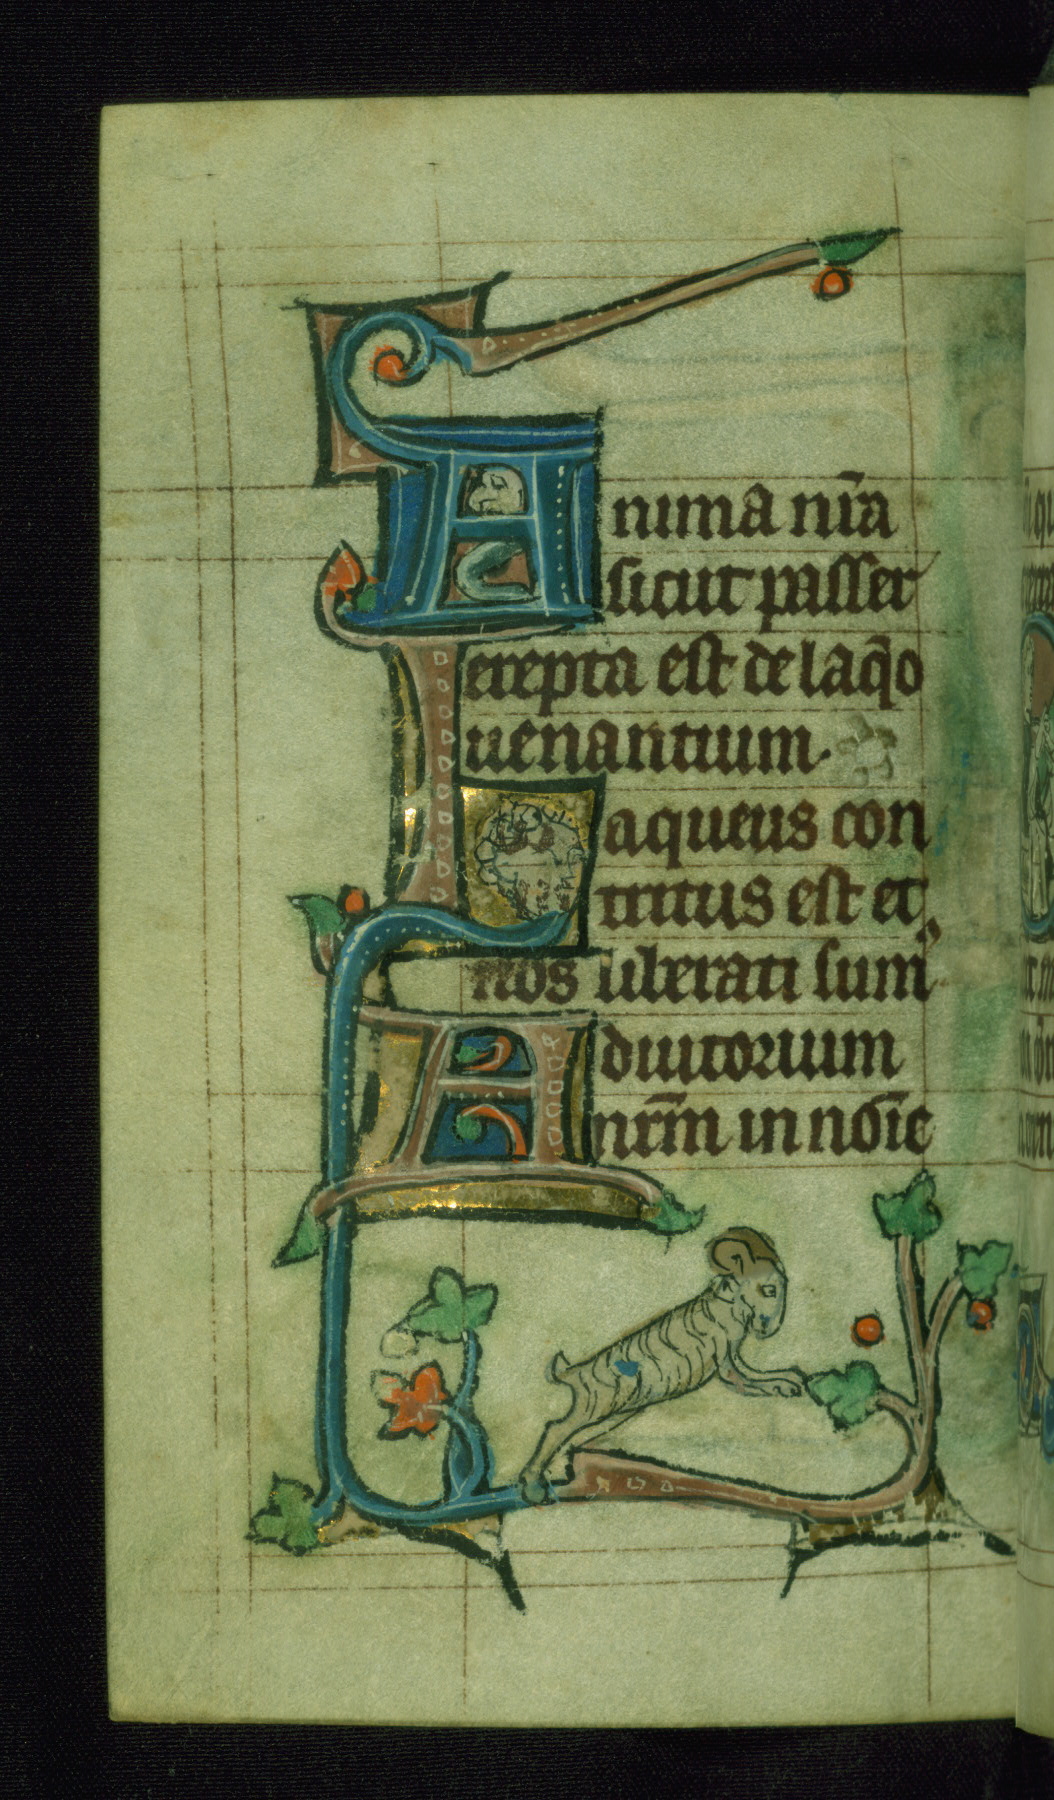 Anima nr̄a
sicut passer
erepta est de laq̄o
uenantium.
Laqueus con
tritus est et
nos liberati sumꝰ
Adiutorium
nrm̄ in nōīe